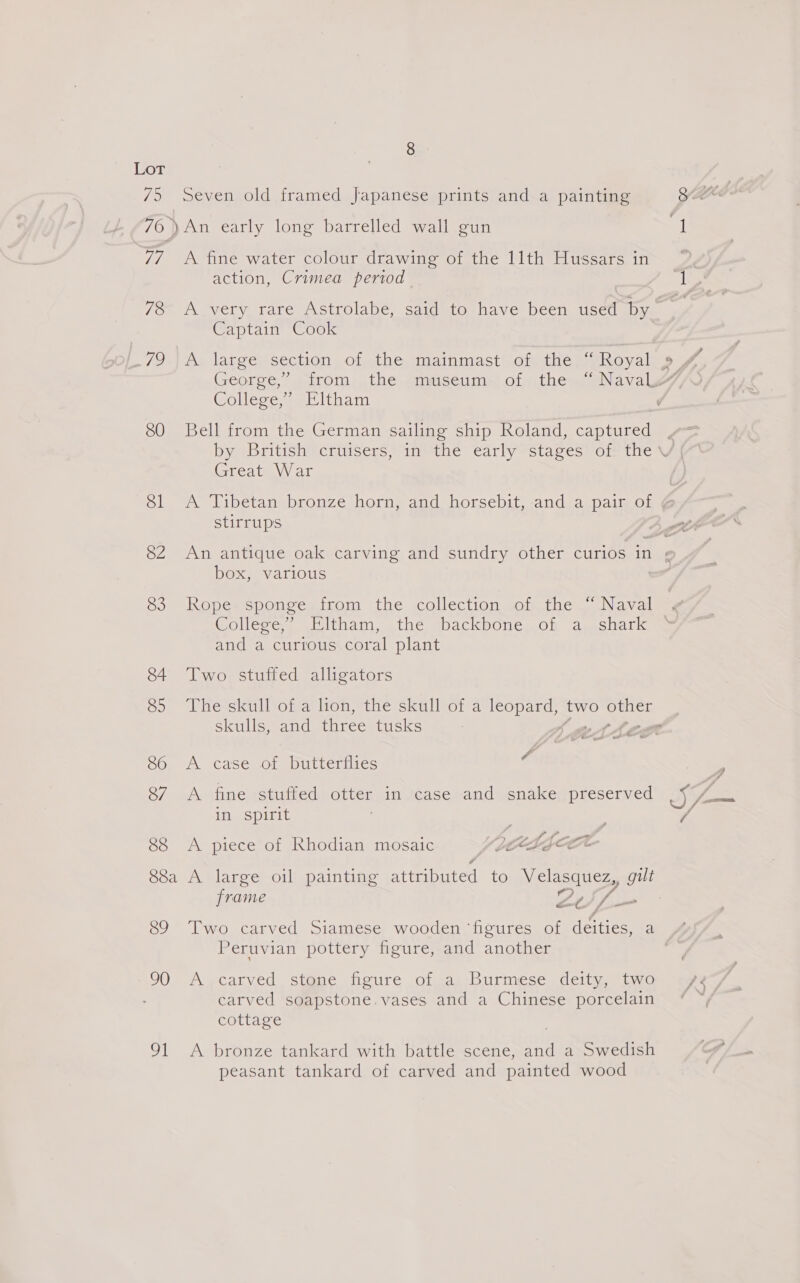 8
Lot
75 Seven old framed Japanese prints and a painting 8
76 ) An early long barrelled wall gun 1
77 A fine water colour drawing of the 11th Hussars in
action, Crimea period 1
78 A very rare Astrolabe, said to have been used by
Captain Cook
79 A large section of the mainmast of the “ Royal
George,” from the museum of the “ Naval
College,” Eltham
80 Bell from the German sailing ship Roland, captured
by British cruisers, in the early stages of the
Great War
81 A Tibetan bronze horn, and horsebit, and a pair of
stirrups
82 An antique oak carving and sundry other curios in
box, various
83 Rope sponge from the collection of the “ Naval
College,” Eltham, the backbone of a shark
and a curious coral plant
84 Two stuffed alligators
85 The skull of a lion, the skull of a leopard, two other
skulls, and three tusks
86 A case of butterflies
87 A fine stuffed otter in case and snake preserved
in spirit
88 A piece of Rhodian mosaic
88a A large oil painting attributed to Velasquez, gilt
frame
89 Two carved Siamese wooden figures of deities, a
Peruvian pottery figure, and another
90 A carved stone figure of a Burmese deity, two
carved soapstone vases and a Chinese porcelain
cottage
91 A bronze tankard with battle scene, and a Swedish
peasant tankard of carved and painted wood